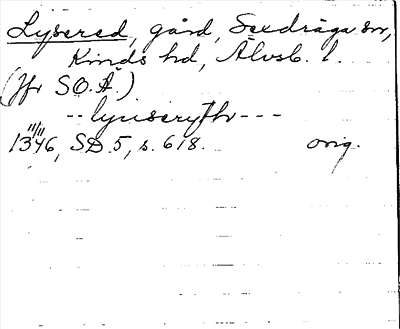 Lysered, gård, Sexdräga sn,
Kinds hd, Älvsb. l.
(Jfr SOÄ.)
-- lyuseryth ---
11/11
1346, SD 5, s. 618. orig.